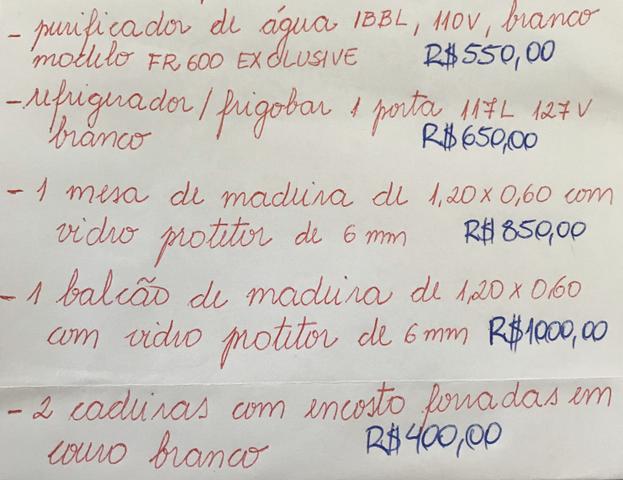 - purificador de água IBBL, 110V, branco
modelo FR600 EXCLUSIVE R$550,00
- refrigerador/frigobar 1 porta 117L 127V
branco R$650,00
- 1 mesa de madeira de 1,20 x 0,60 com
vidro protetor de 6 mm R$850,00
- 1 balcão de madeira de 1,20 x 0,60
com vidro protetor de 6 mm R$1000,00
- 2 cadeiras com encosto forradas em
couro branco R$400,00